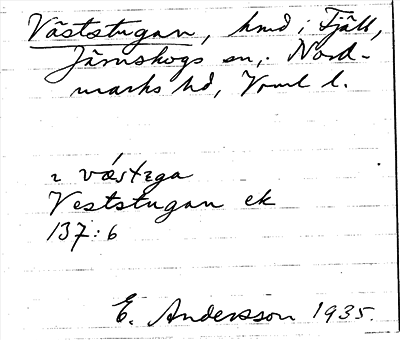 Väststugan, hmd i Fjäll,
Järnskogs sn, Nord-
marks hd, Vrml l.
2 væ̀stɛga
Veststugan ek
137:6
E. Andersson 1935.